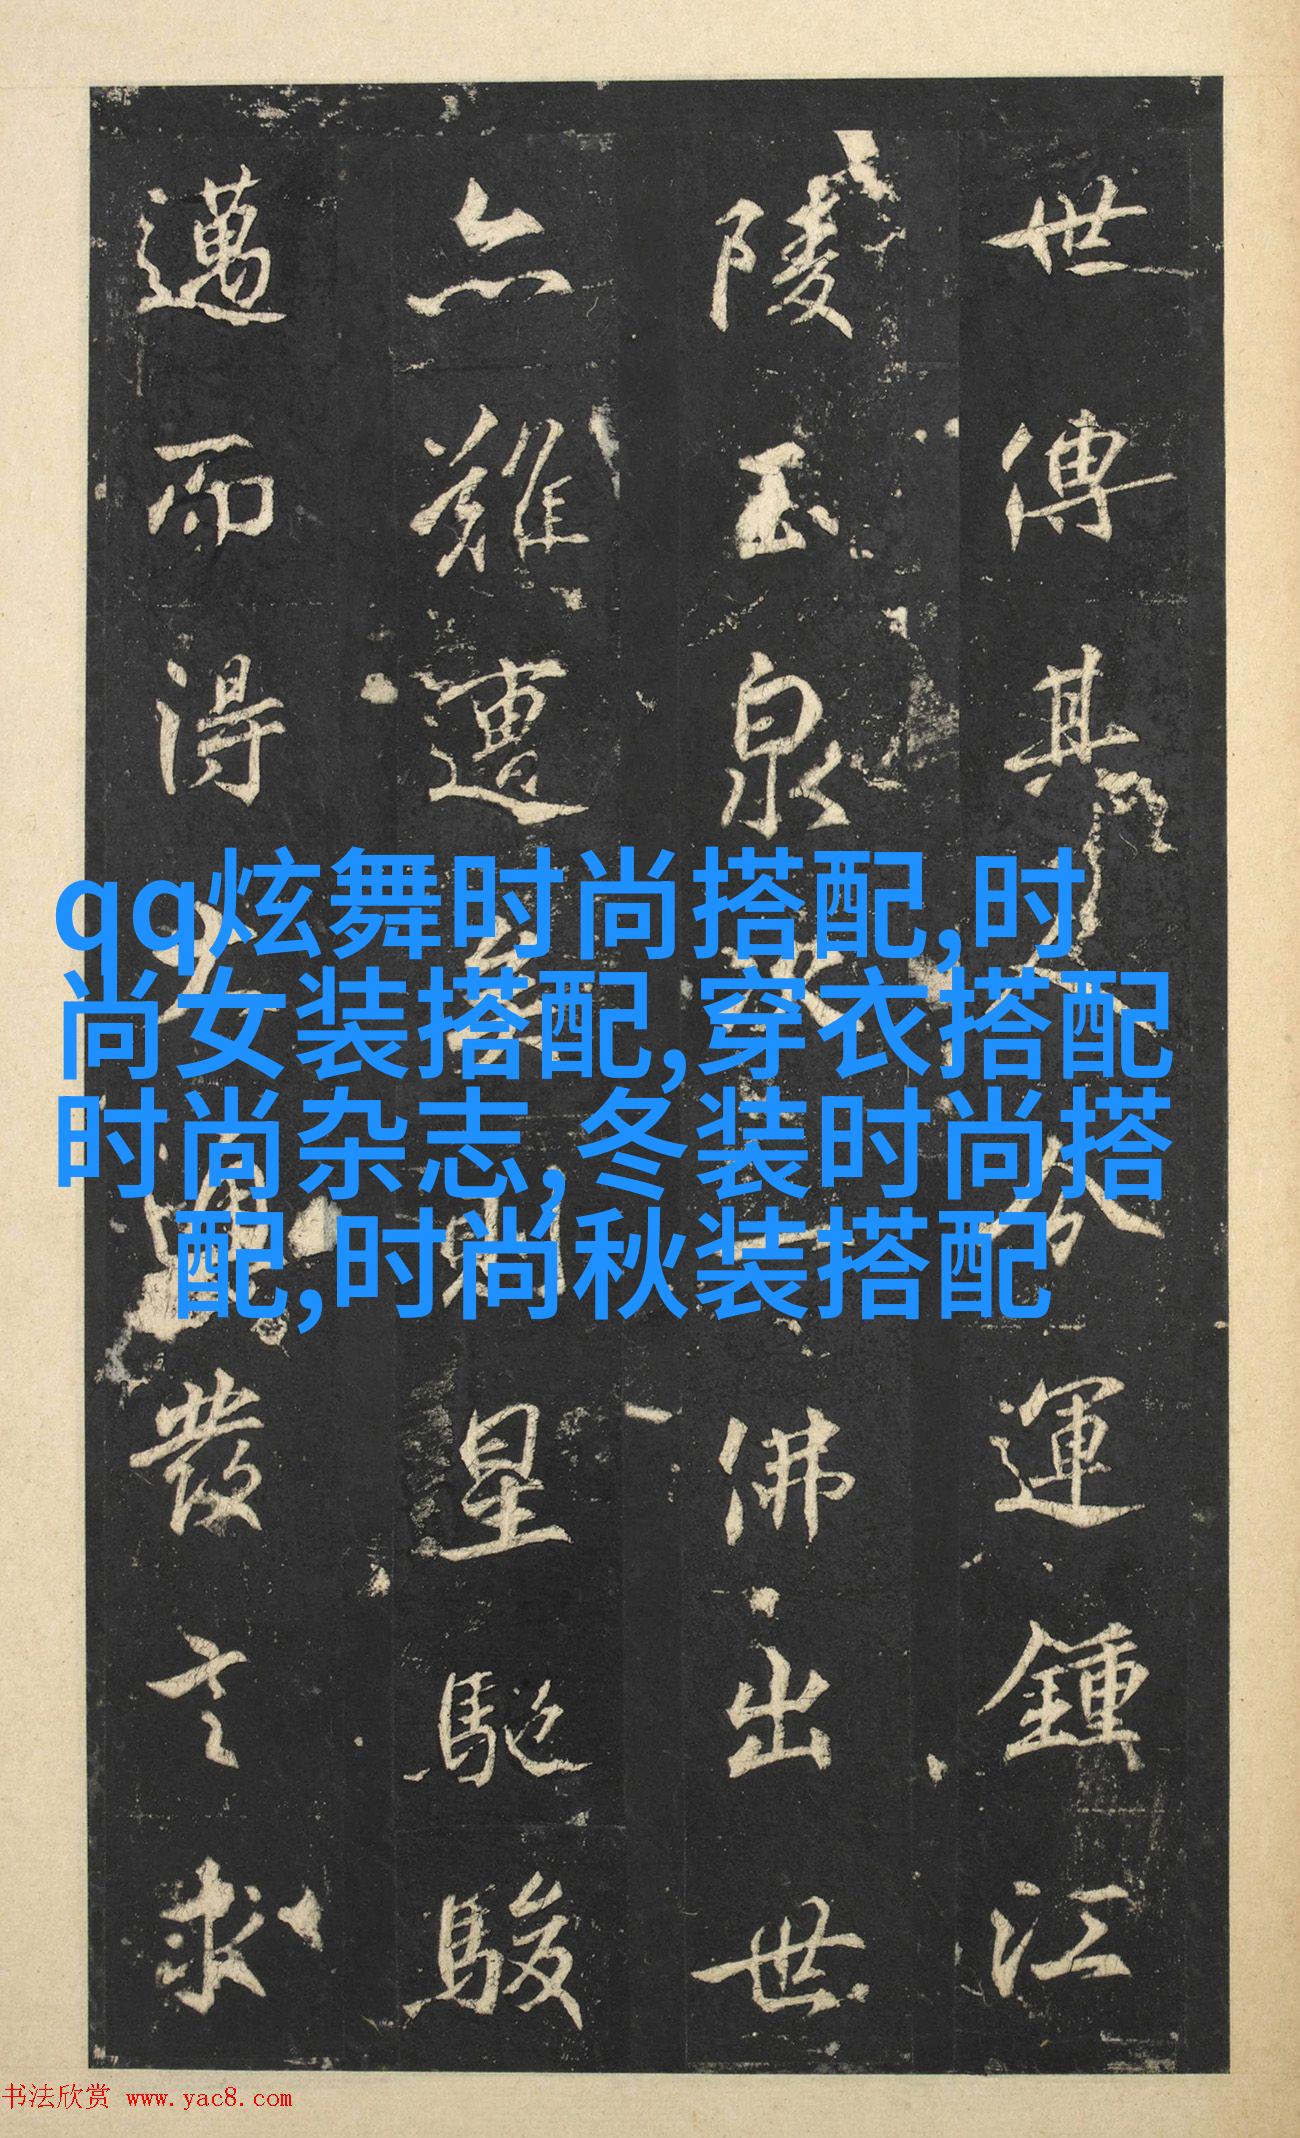 世傳其運鍾江
陵玉泉佛出世
亦難遭星馳駿
邁而得發言求
qq炫舞时尚搭配,时
尚女装搭配,穿衣搭配
时尚杂志,冬装时尚搭
配,时尚秋装搭配
书法欣赏 www.yac8.com